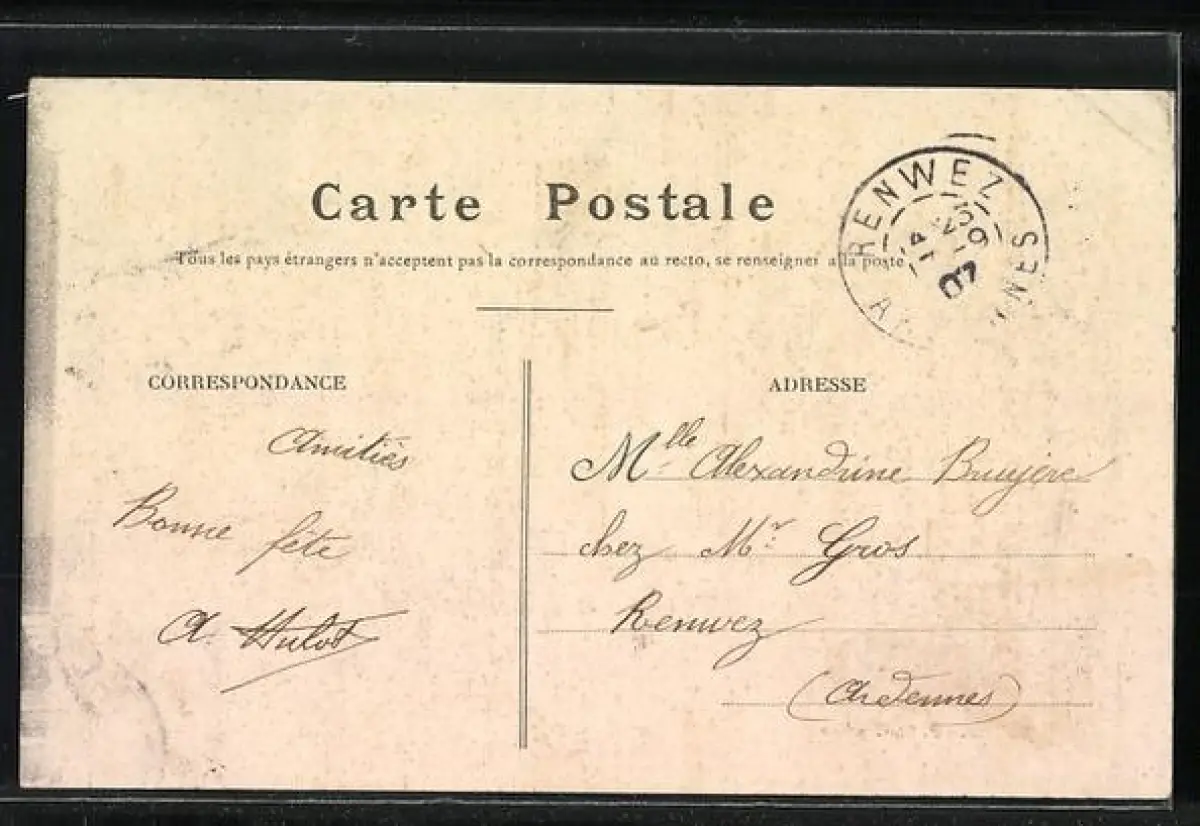 Carte Postale
Tous les pays étrangers n'acceptent pas la correspondance au recto, se renseigner à la poste
RENWEZ
07
CORRESPONDANCE
ADRESSE
Amitiés
Bonne fête
A. Hulot
Mlle Alexandrine Bruyère
chez Mr Gros
Renwez
(Ardennes)